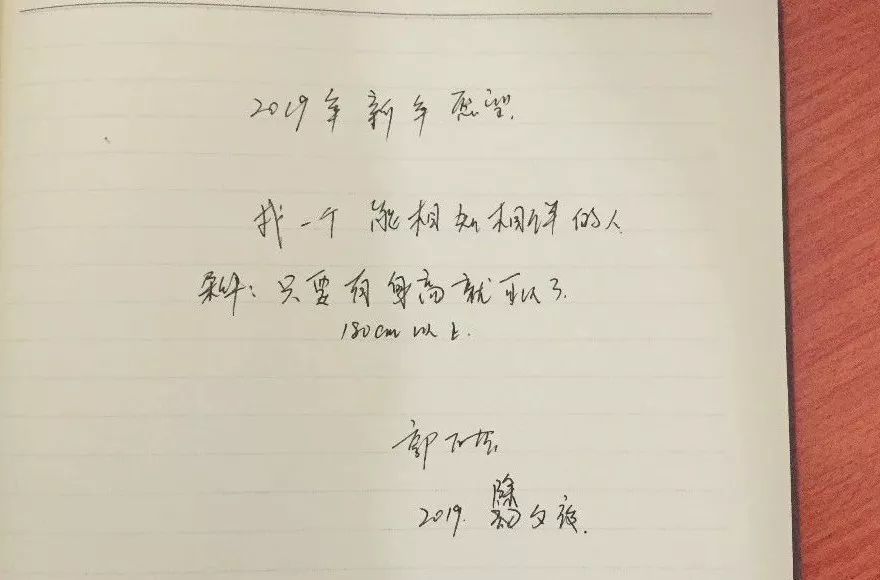 2019年新年愿望.
找一个能相知相伴的人.
条件：只要有身高就可以了.
180cm以上.
郭
2019. 除夕夜.